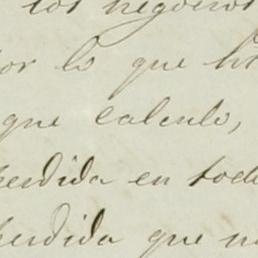 los negocios
por lo que
que calculo,
perdida en
perdida que